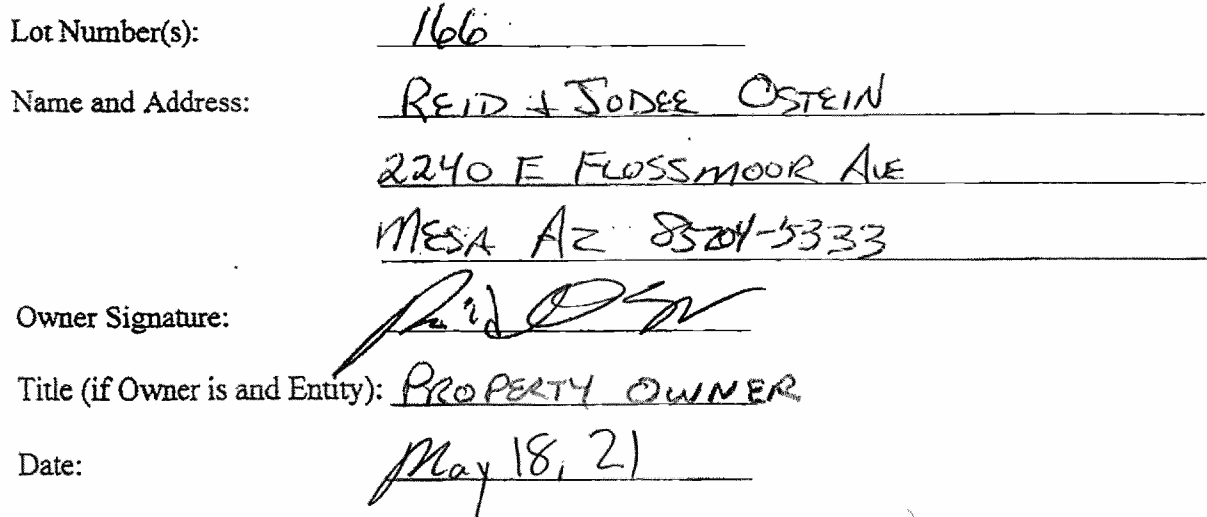 Lot Number(s): 166
Name and Address: REID + JODEE OSTEIN
2240 E FLOSSMOOR AVE
MESA AZ 85204-5333
Owner Signature:
Title (if Owner is and Entity): PROPERTY OWNER
Date: May 18, 21